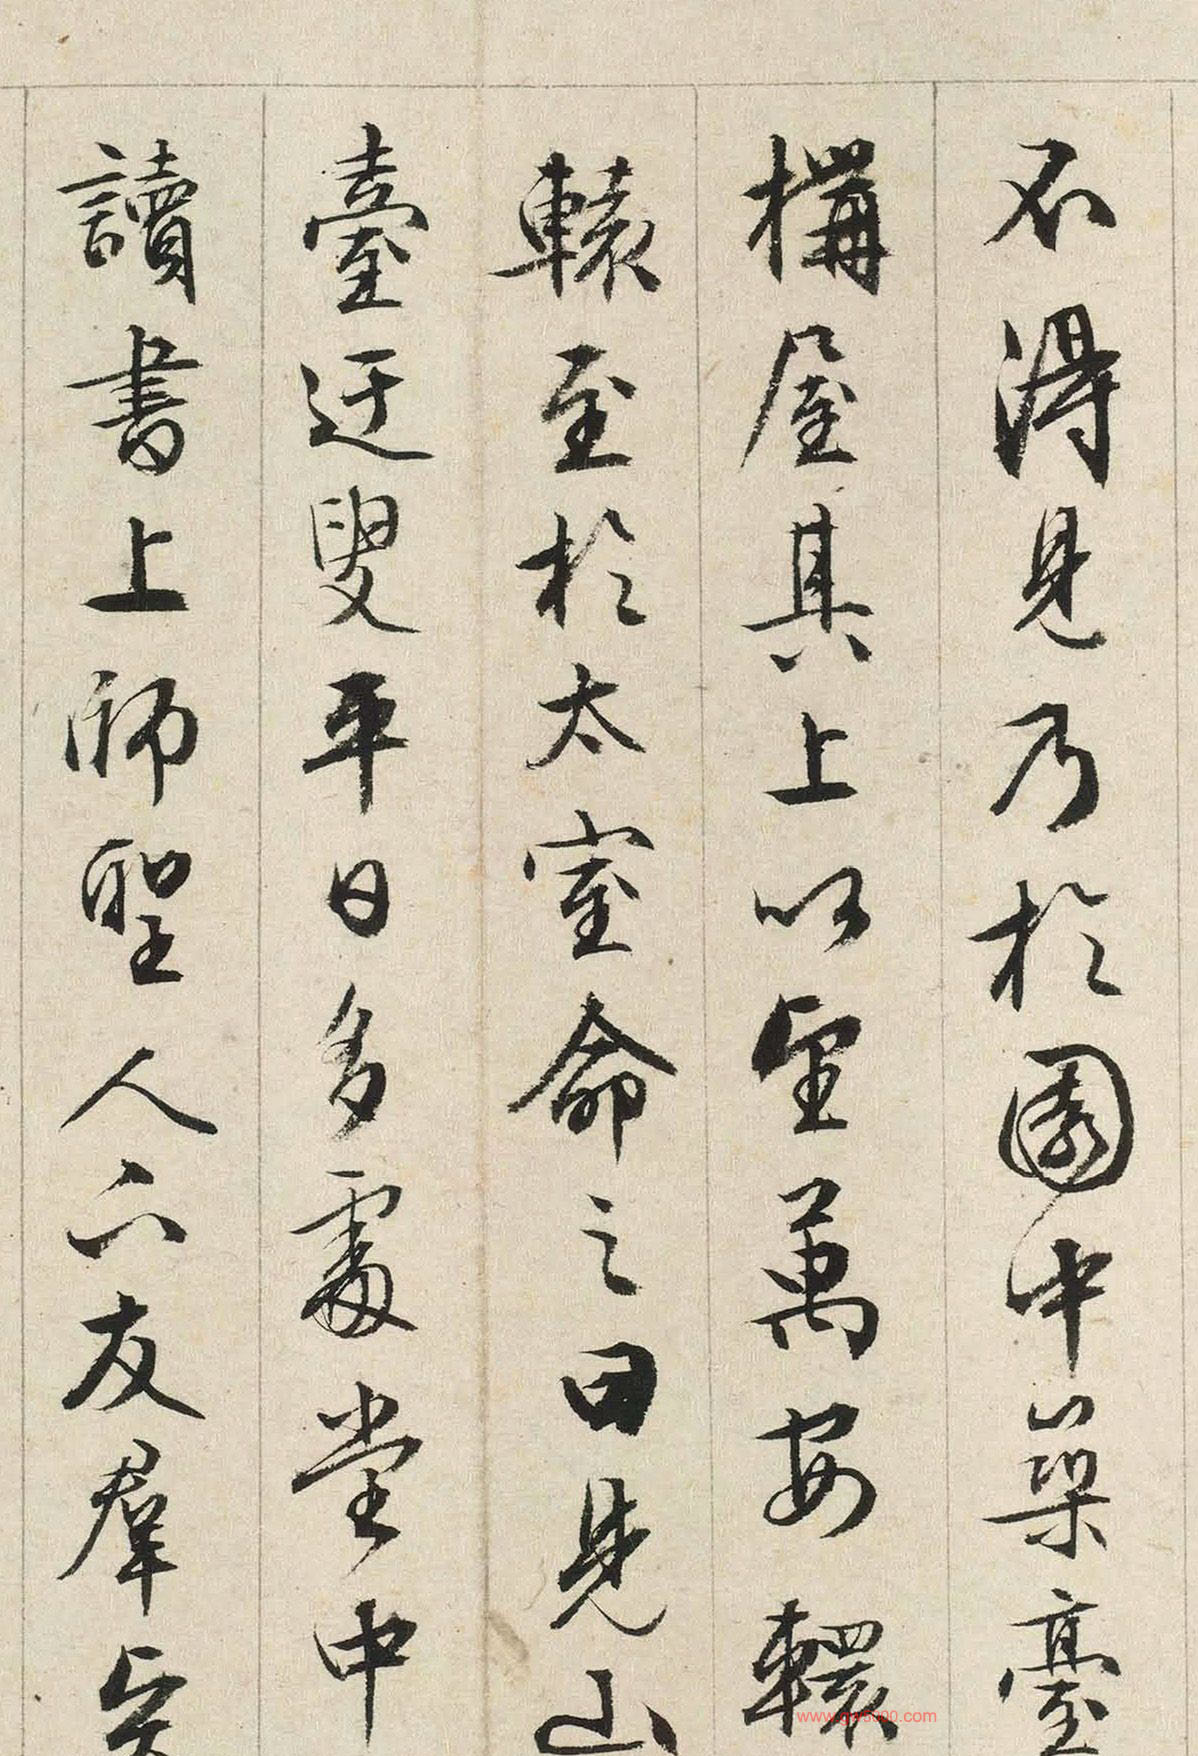 不得見乃於園中築臺
構屋其上以望萬安轘
轅至於太室命之曰見山
臺迂叟平日多處堂中
讀書上師聖人下友羣賢